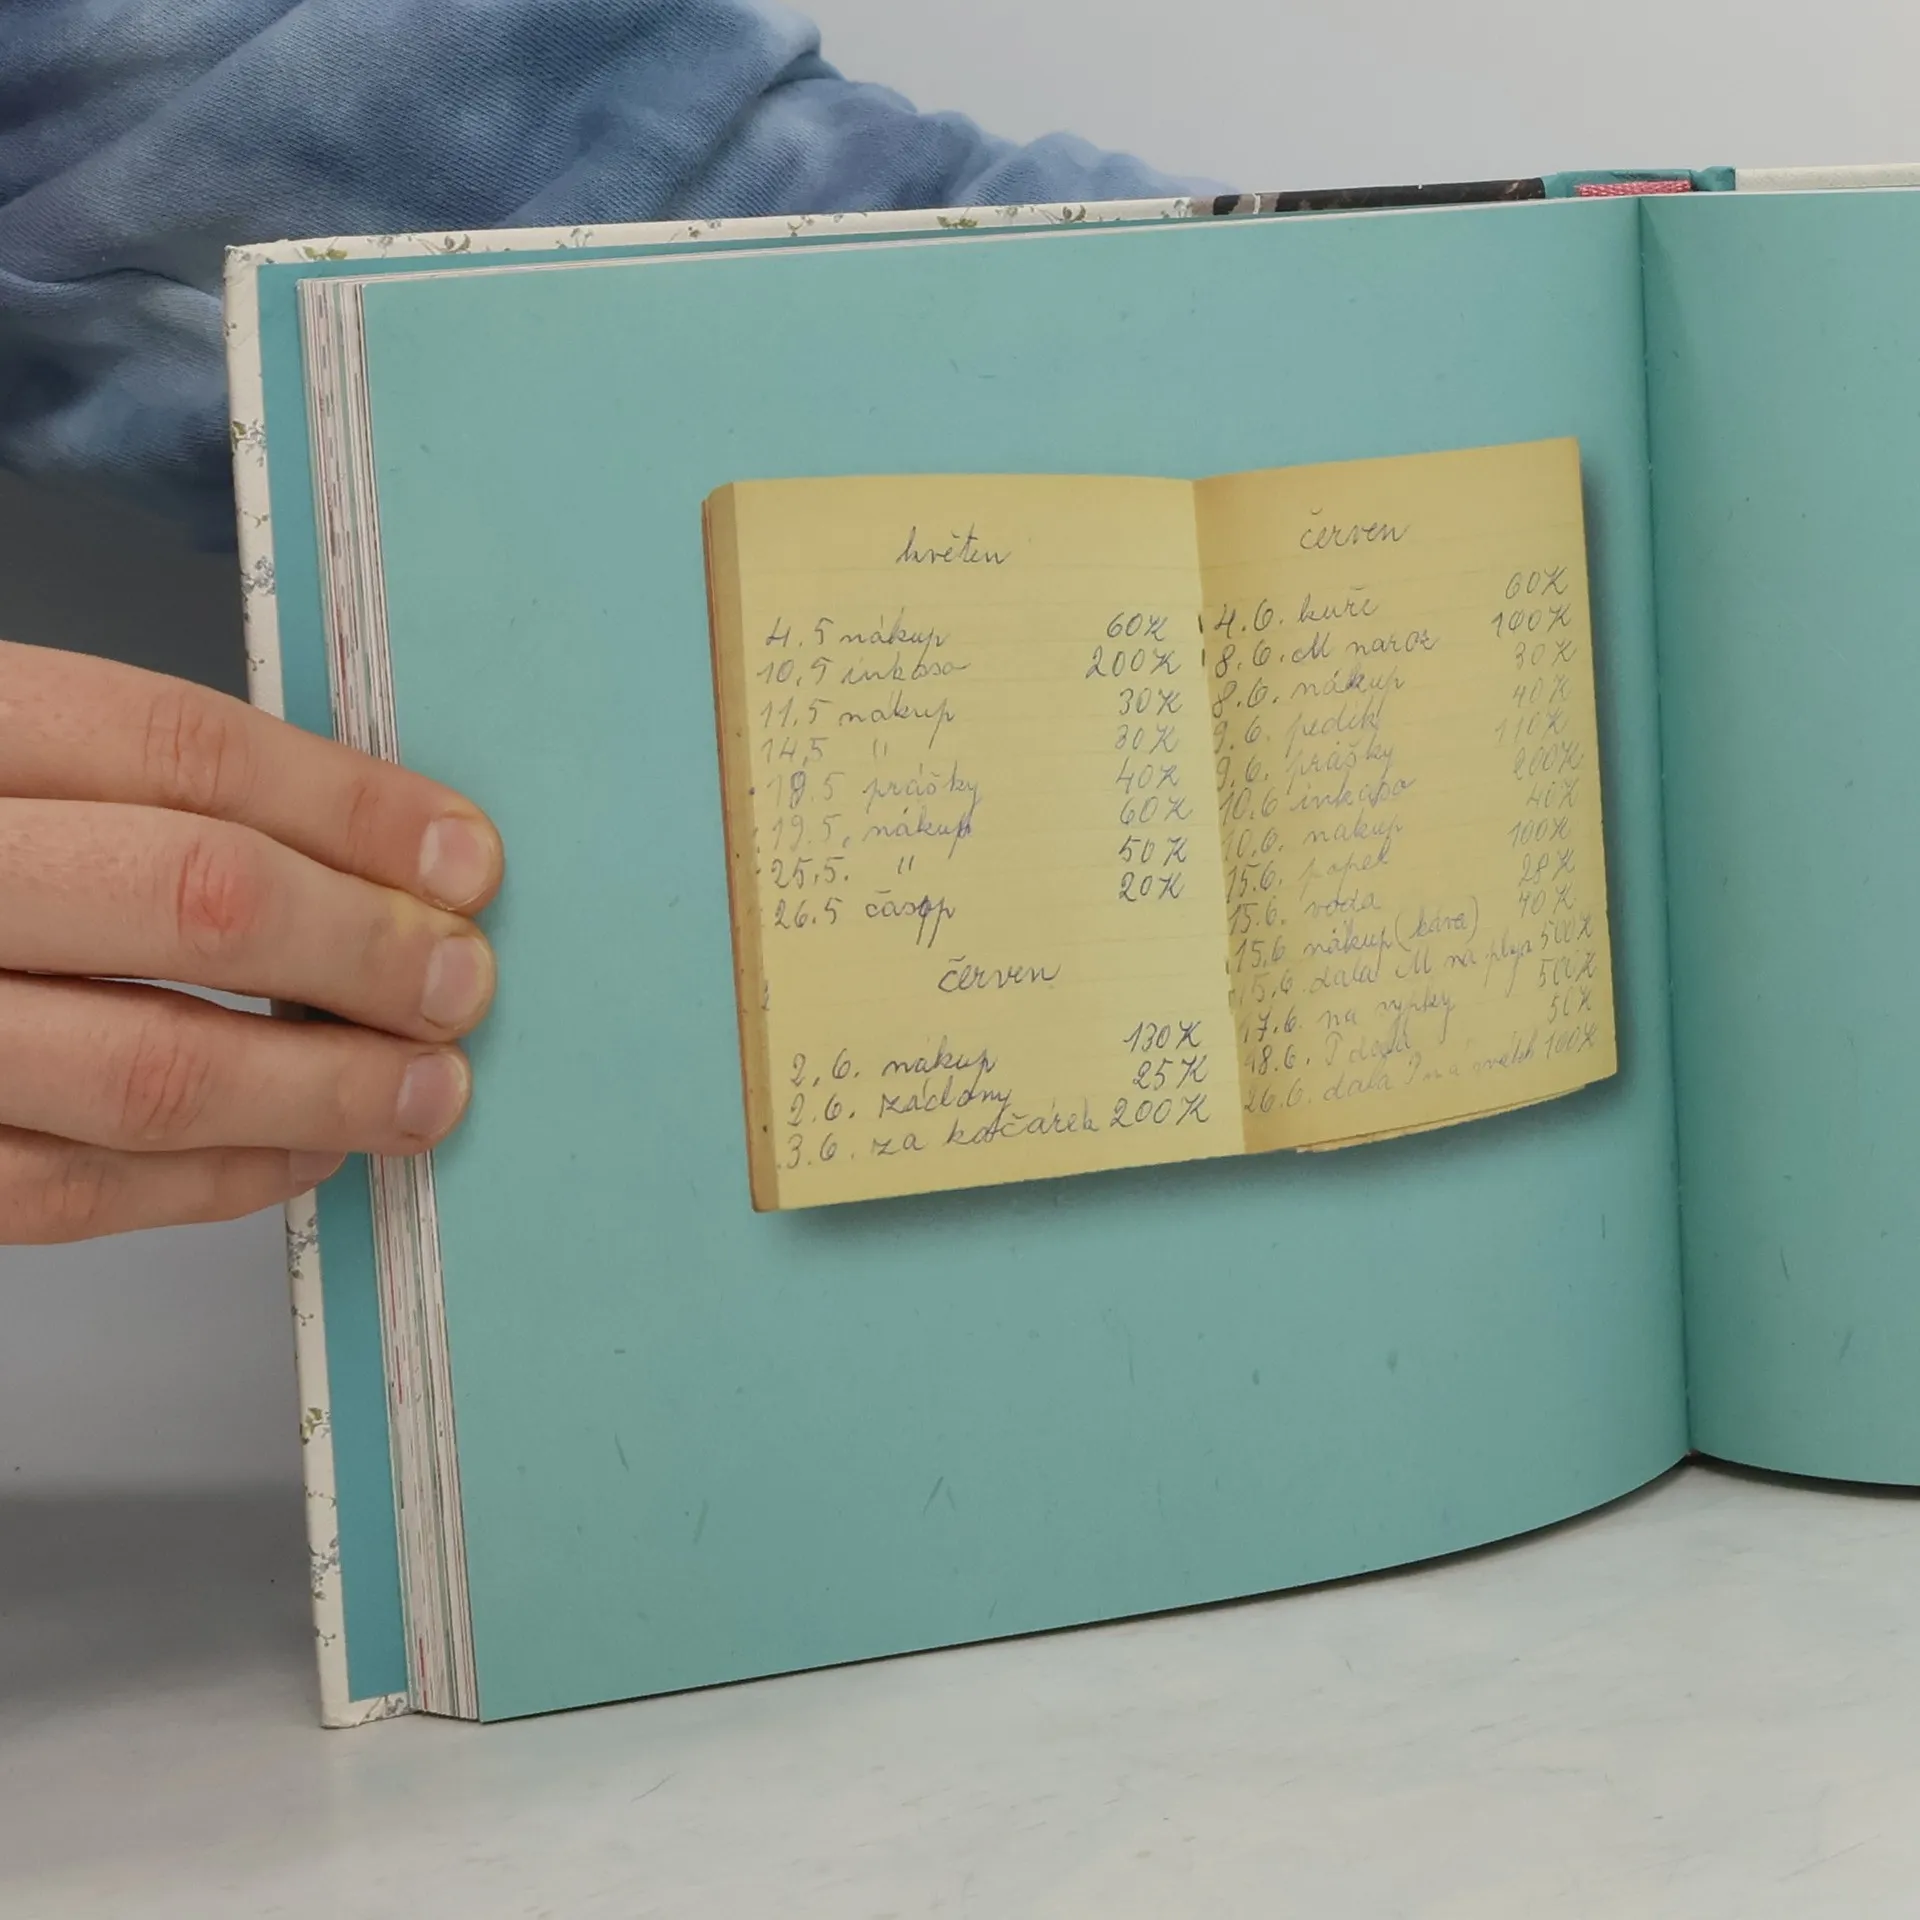 květen
4.5 nákup 60K
10,5 inkaso 200K
11,5 nákup 30K
14,5 " 30K
19.5 prášky 40K
19.5. nákup 60K
25.5. " 50K
26.5 časop 20K
červen
2.6. nákup 130K
2.6. záclony 25K
3.6. za kočárek 200K
červen
4.6. kuře 60K
8.6. M naroz 100K
8.6. nákup 30K
9.6. pedik 40K
9.6. prášky 110K
10.6 inkaso 200K
10.6. nákup 40K
15.6. popel 100K
15.6. voda 28K
15.6 nákup (káva) 40K
15.6. dala M na plyn 500K
17.6. na 500K
18.6. 50K
26.6. dala 100K